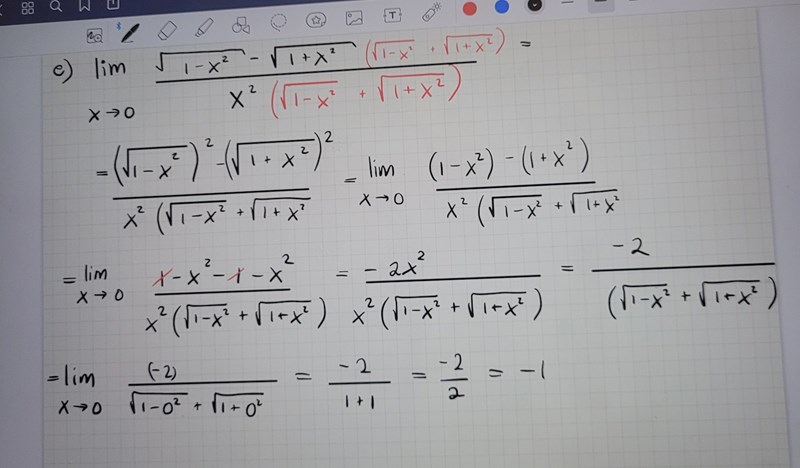 e) lim √(1-x²) - √(1+x²) (√(1-x²) + √(1+x²)) / x² (√(1-x²) + √(1+x²)) =
x→0
= (√(1-x²))² - (√(1+x²))² / x² (√(1-x²) + √(1+x²) = lim x→0 (1-x²) - (1+x²) / x² (√(1-x²) + √(1+x²)
= lim x→0 1-x²-1-x² / x² (√(1-x²) + √(1+x²)) = -2x² / x² (√(1-x²) + √(1+x²)) = -2 / (√(1-x²) + √(1+x²))
= lim x→0 (-2) / √(1-0²) + √(1+0²) = -2 / 1+1 = -2 / 2 = -1